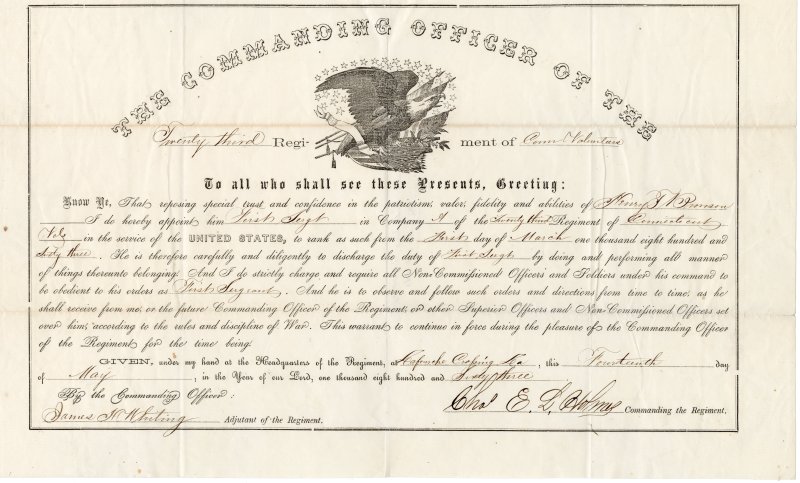 THE COMMANDING OFFICER OF THE
Twenty third Regiment of Conn Volunteers
To all who shall see these Presents, Greeting:
Know Ye, That reposing special trust and confidence in the patriotism, valor, fidelity and abilities of Henry Bronson
I do hereby appoint him First Sergt in Company A of the Twenty third Regiment of Connecticut
Vols in the service of the UNITED STATES, to rank as such from the First day of March one thousand eight hundred and
sixty three. He is therefore carefully and diligently to discharge the duty of First Sergt by doing and performing all manner
of things thereunto belonging. And I do strictly charge and require all Non-Commissioned Officers and Soldiers under his command to
be obedient to his orders as First Sergeant. And he is to observe and follow such orders and directions from time to time, as he
shall receive from me, or the future Commanding Officer of the Regiment, or other Superior Officers and Non-Commissioned Officers set
over him, according to the rules and discipline of War. This warrant to continue in force during the pleasure of the Commanding Officer
of the Regiment for the time being.
GIVEN, under my hand at the Headquarters of the Regiment, at Lafourche Crossing La, this Fourteenth day
of May, in the Year of our Lord, one thousand eight hundred and Sixty three
By the Commanding Officer:
Chas E. L. Holmes Commanding the Regiment.
James H Whiting Adjutant of the Regiment.